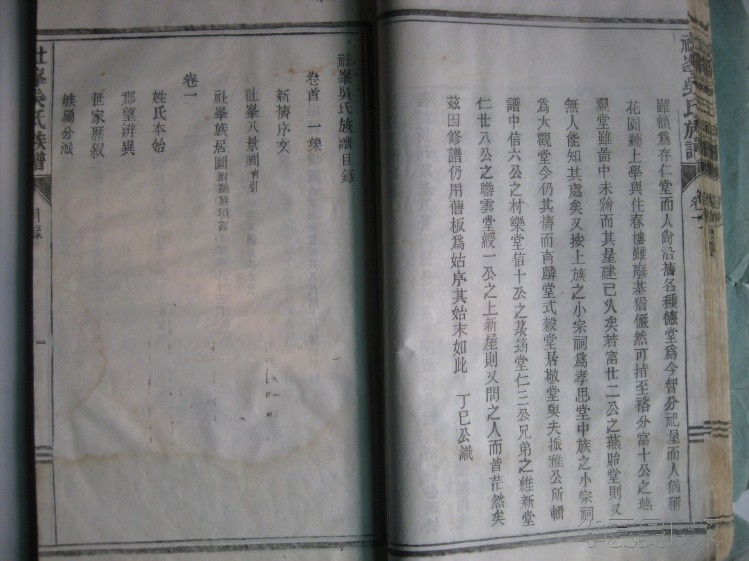 社峯吳氏族譜
卷首
雖額爲存仁堂而人尙沿舊名種德堂爲今智分祀屋而人猶稱
花園 上學與住春樓雖廢基猶儼然可指至裕分富十公之燕
翼堂雖啚中未繪而其屋建已久矣若富廿二公之燕貽堂則又
無人能知其處矣又按上族之小宗祠爲孝思堂中族之小宗祠
爲大觀堂今仍其舊而育麟堂式穀堂居敬堂與夫振雅公所輯
譜中信六公之材樂堂信十公之菉筠堂仁三公兄弟之維新堂
仁廿八公之聯雲堂綬一公之上新屋則又問之人而皆茫然矣
茲因修譜仍用舊板爲姑序其始末如此 丁巳公識
社峯吳氏族譜目錄
卷首 一集
新舊序文
社峯八景圖 有引
社峯族居圖
卷一
姓氏本始
郡望辨異
世家歷叙
族屬分派
社峯吳氏族譜
目錄
一